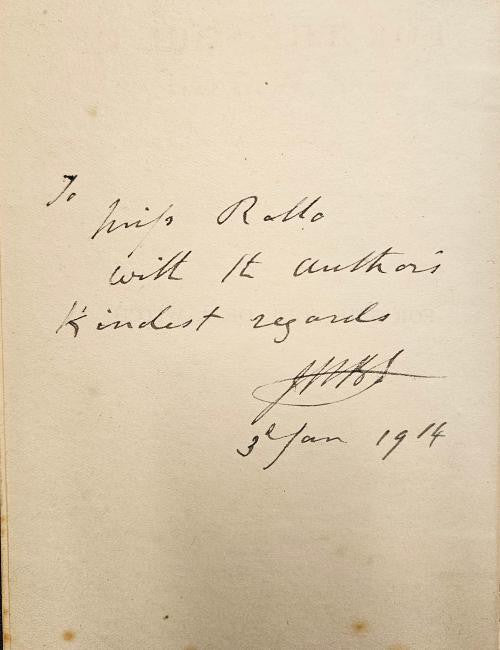 To
Miss Rollo
with the author's
Kindest regards
3d Jan 1914